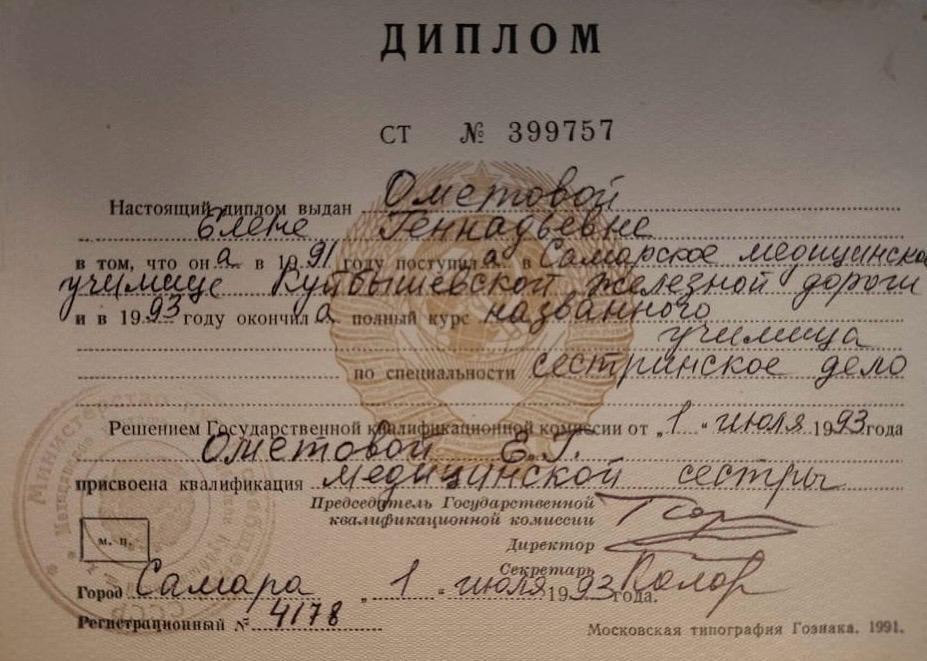 ДИПЛОМ
СТ № 399757
Настоящий диплом выдан Ометовой
Елене Геннадьевне
в том, что она в 1991 году поступила в Самарское медицинское
училище Куйбышевской железной дороги
и в 1993 году окончила полный курс названного
училища
по специальности сестринское дело
Решением Государственной квалификационной комиссии от „1" июля 1993 года
Ометовой Е.Г.
присвоена квалификация медицинской сестры
Председатель Государственной
квалификационной комиссии
Директор
Секретарь
м. п.
Город Самара „1" июля 1993 года.
Регистрационный № 4178
Московская типография Гознака. 1991.
Министерство
СССР